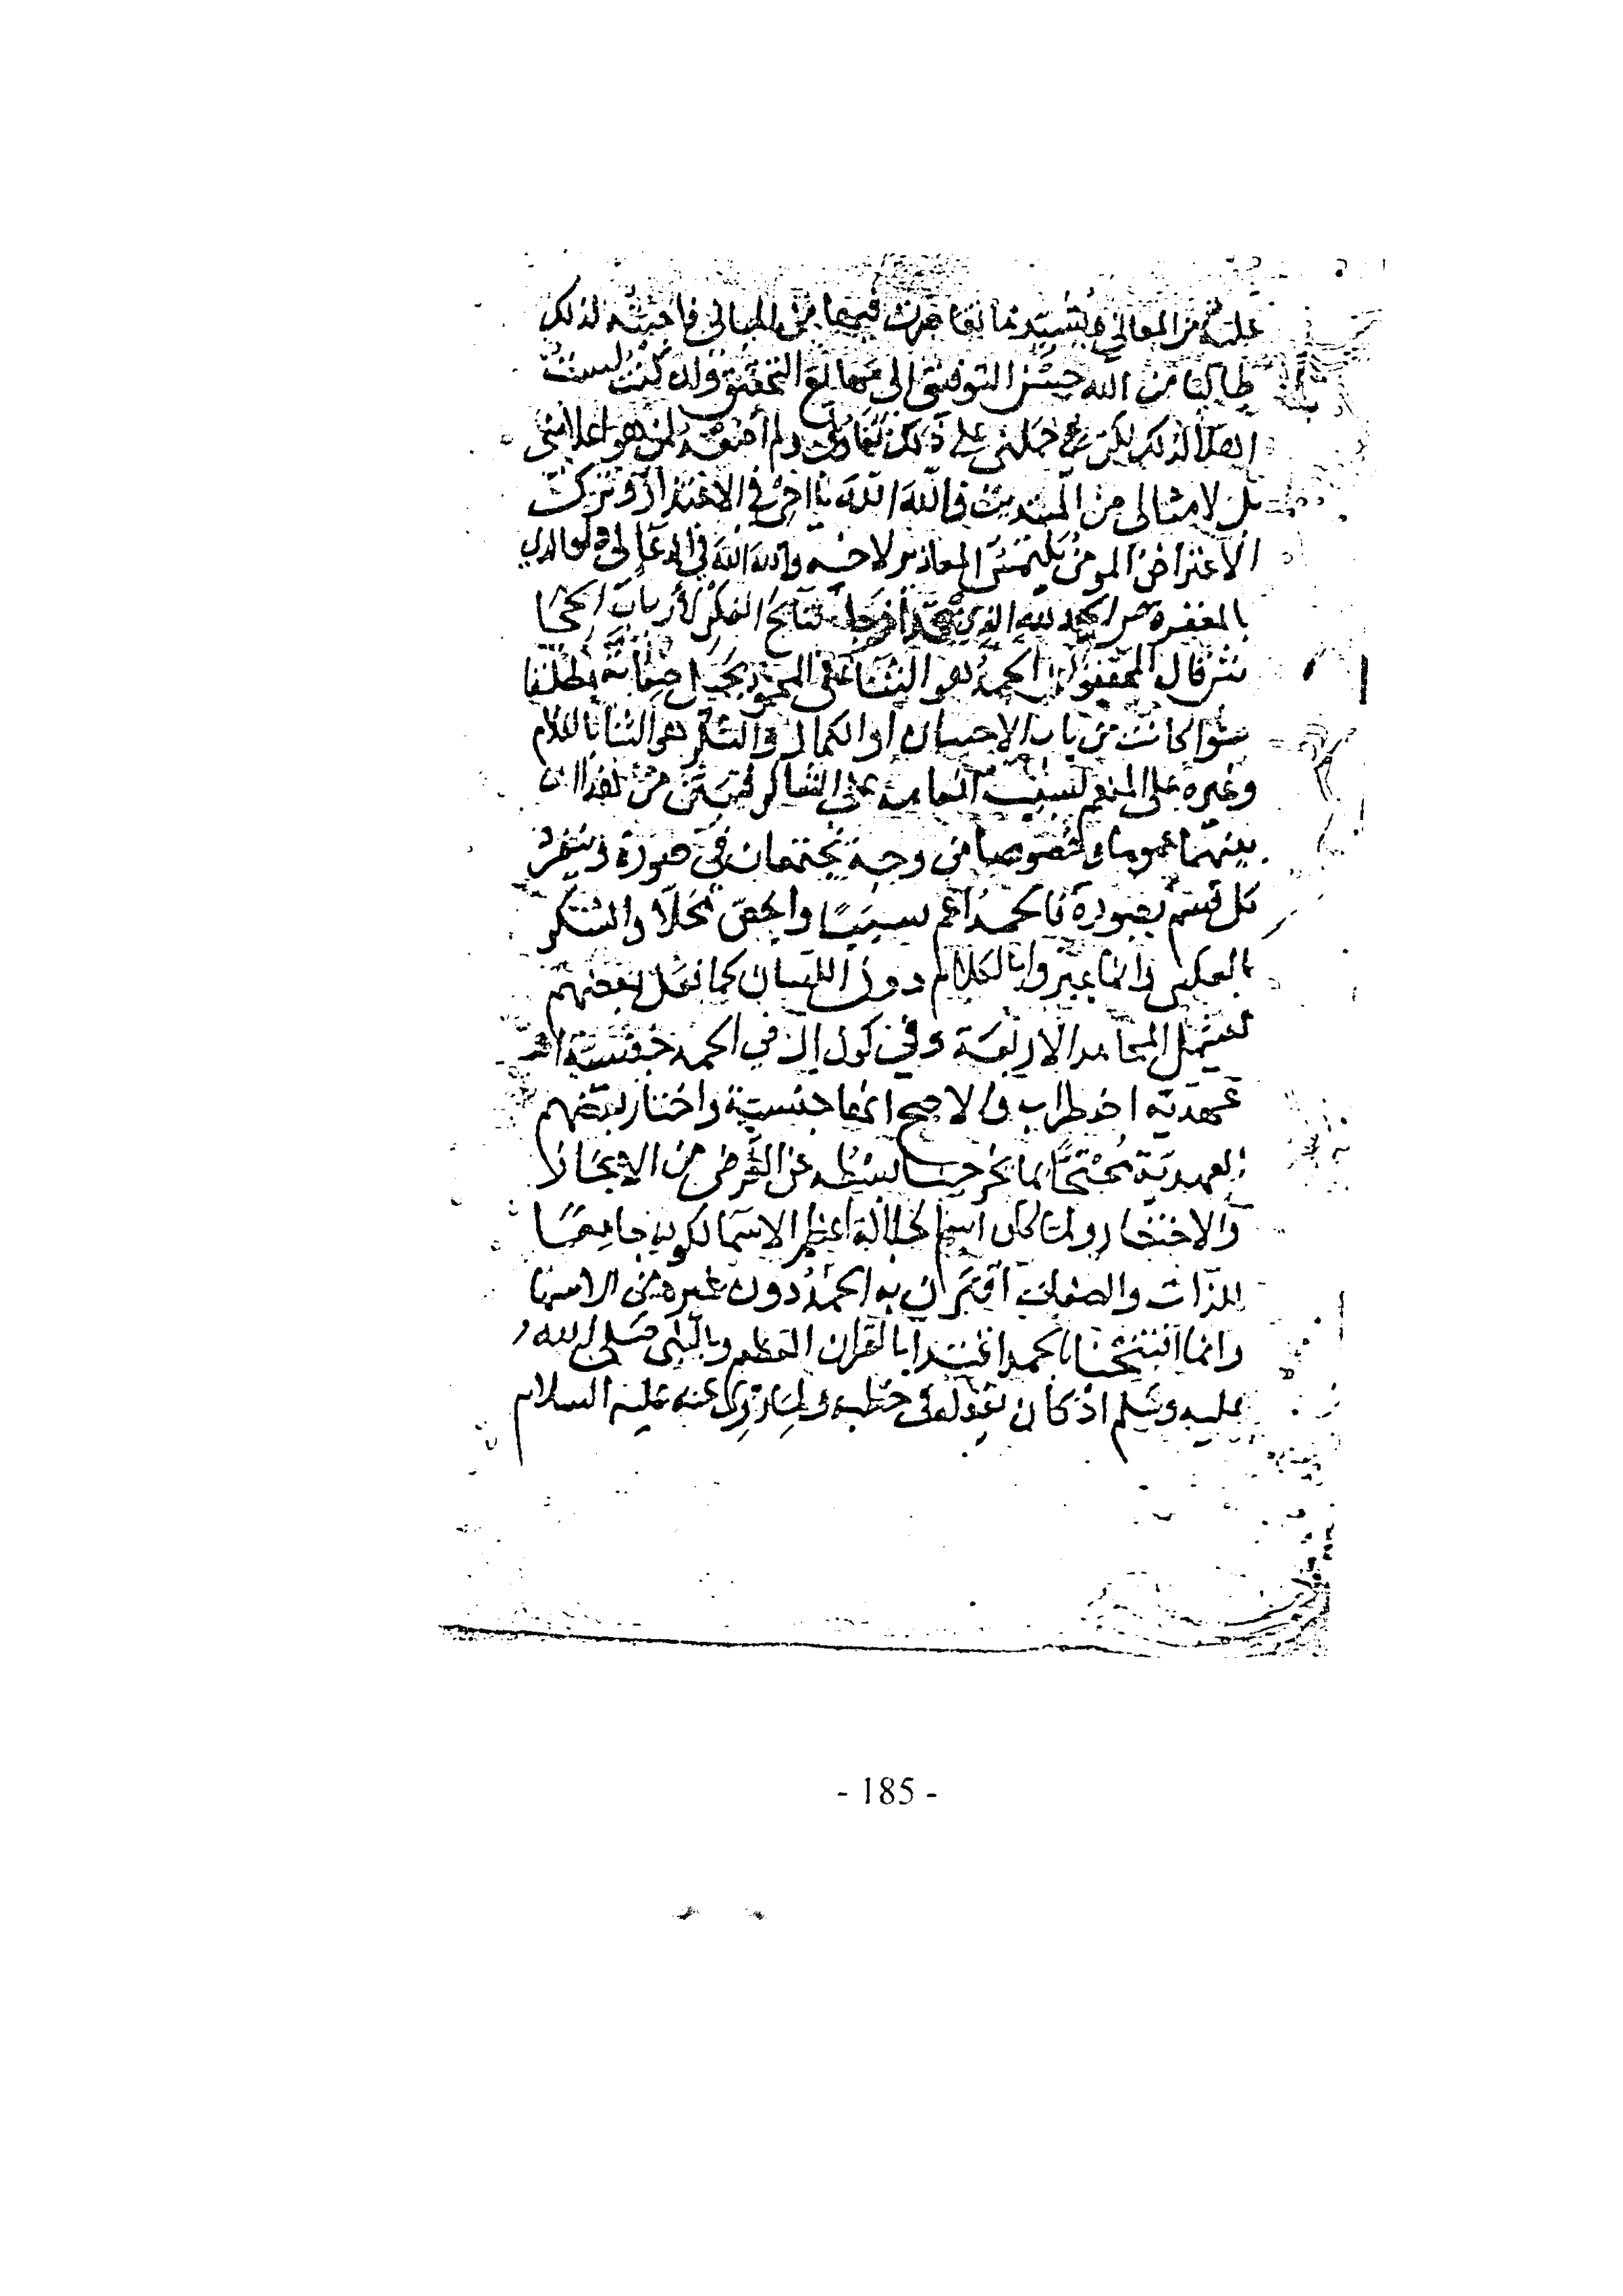 عليه من المعاني ويشيد ما تقاصرت فيها من المباني فاجبته لذلك
طالبا من الله حسن التوفيق الى مهايع التحقيق وان كنت لست
اهلا لذلك لكن حملني على ذلك ولم اضعه لمن هو اعلا مني
بل لامثالي من المبتديين فالله الله يا اخي في الاعتذار وترك
الاعتراض المومن يلتمس المعاذير لاخيه والله الله في الدعا لي ولوالدي
بالمغفرة ص الحمد لله الذي قد اخرجا نتايج الفكر لارباب الحجا
ش قال المحققون الحمد هو الثنا على المحمود بجميل صفاته مطلقا
سوا كانت من باب الاحسان او الكمال والشكر هو الثنا باللام
وغيره على المنعم بسبب انعامه على الشاكر فتبين من هذا ان
بينهما عموما وخصوصا من وجه يجتمعان في صورة وينفرد
كل قسم بصورة فالحمد اعم سببا واخص محلا والشكر
بالعكس وانما عبروا بالكلام دون اللسان كما نقل بعضهم
ليشمل المحامد الاربعة وفي كون ال في الحمد جنسية ام
عهدية اضطراب والاصح انها جنسية واختار بعضهم
العهدية محتجا بما يخرجنا بسطه عن الغرض من الايجاز
والاختصار ولما كان اسم الجلالة اعظم الاسما لكونه جامعا
للذات والصفات اقترن به الحمد دون غيره من الاسما
وانما افتتحنا بالحمد اقتدا بالقران العظيم وبالنبي صلى الله
عليه وسلم اذ كان يقوله في خطبه ولما روي عنه عليه السلام
- 185 -